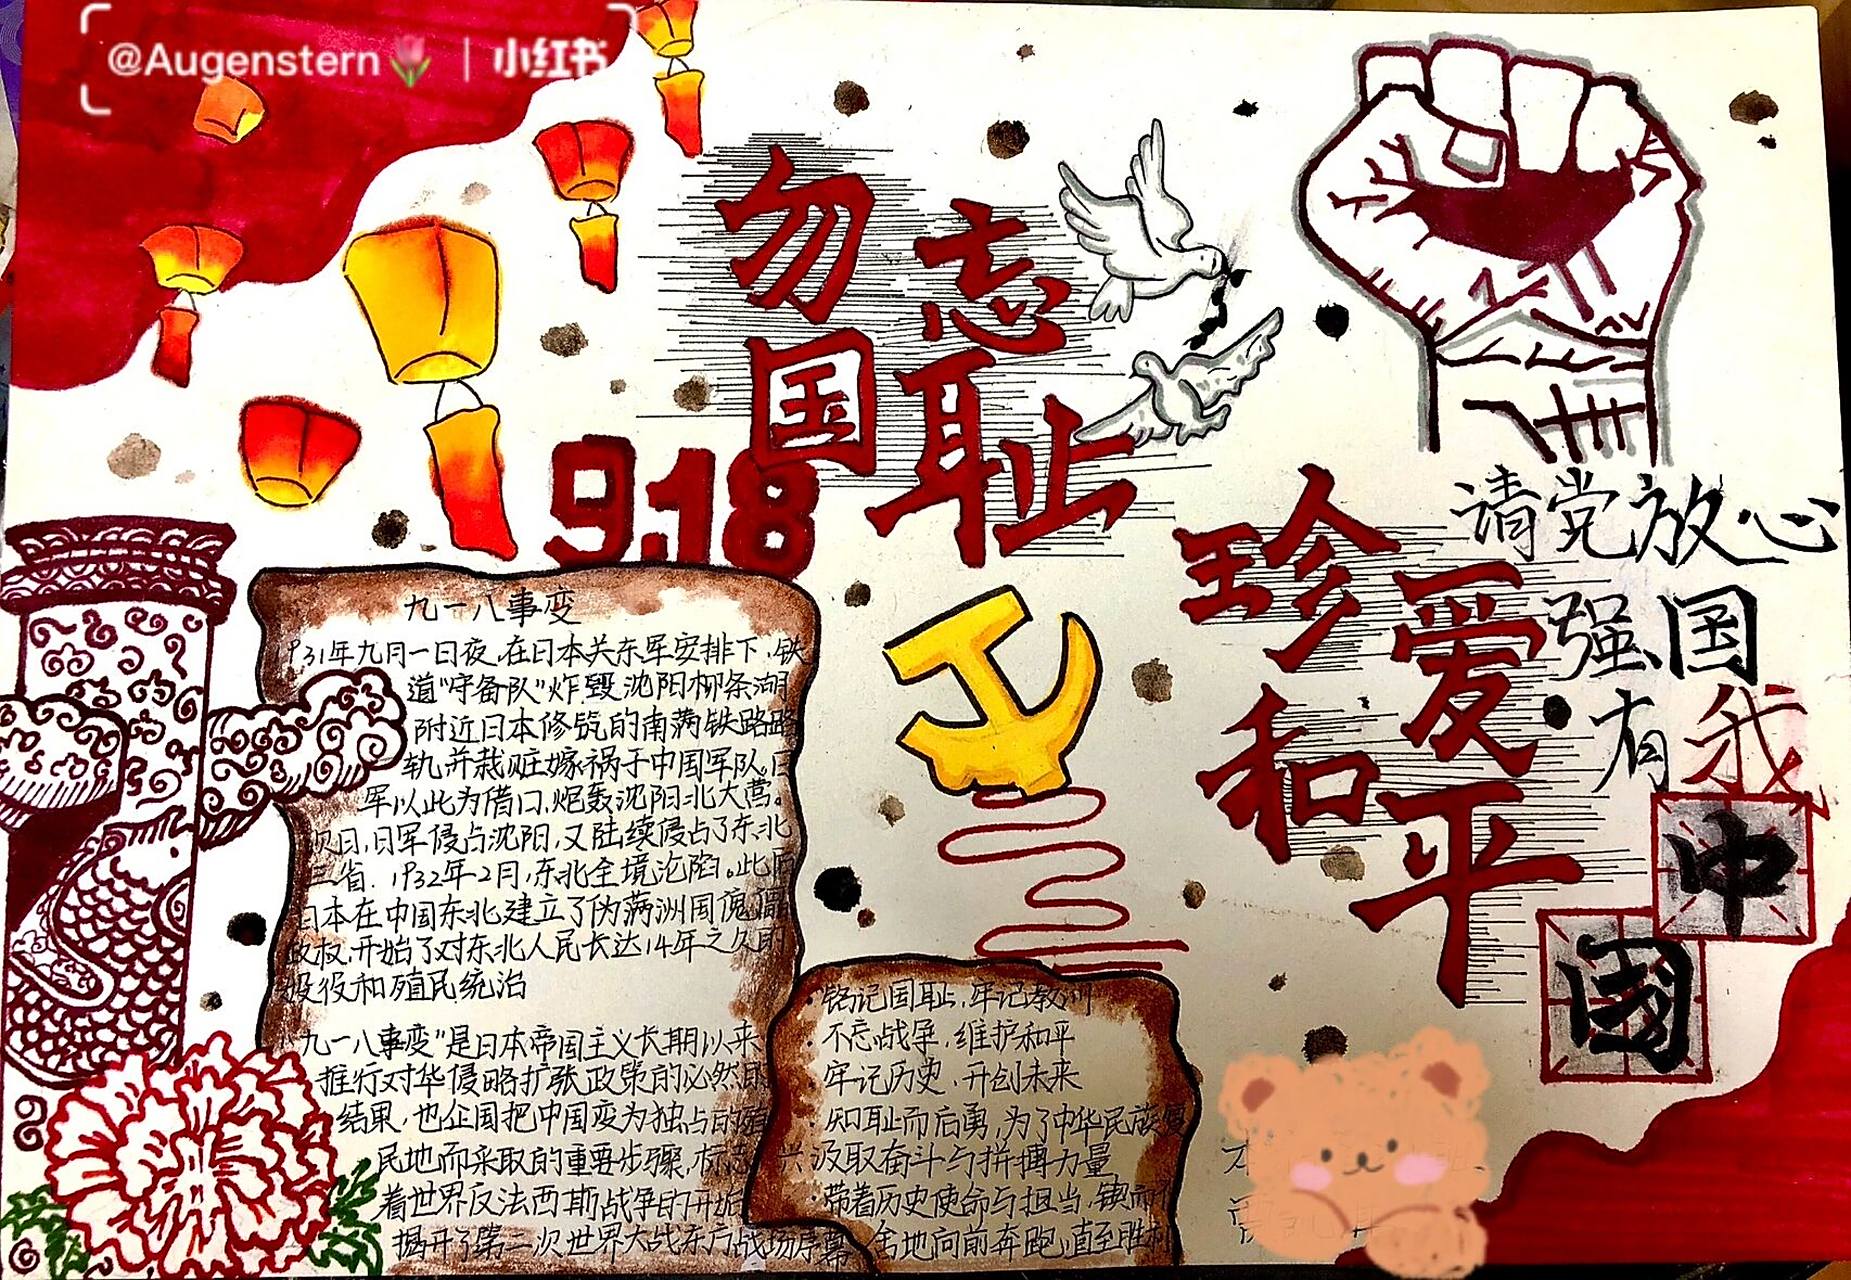 @Augenstern | 小红书
勿忘
国耻
9.18
珍爱
和平
请党放心
强国
有我
中
国
九一八事变
1931年九月一日夜,在日本关东军安排下,铁
道"守备队"炸毁沈阳柳条湖
附近日本修筑的南满铁路路
轨,并栽赃嫁祸于中国军队。日
军以此为借口,炮轰沈阳北大营。
次日,日军侵占沈阳,又陆续侵占了东北
三省.1932年2月,东北全境沦陷。此后
日本在中国东北建立了伪满洲国傀儡
政权,开始了对东北人民长达14年之久的
役和殖民统治
九一八事变"是日本帝国主义长期以来
推行对华侵略扩张政策的必然
结果,也企国把中国变为独占的殖
民地而采取的重要步骤,标志
着世界反法西斯战争的开始
揭开了第二次世界大战东方战场序幕
·铭记国耻,牢记教训
·不忘战争,维护和平
·牢记历史,开创未来
·知耻而后勇,为了中华民族复
兴汲取奋斗与拼搏力量
·带着历史使命与担当,锲而不
舍地向前奔跑,直至胜利